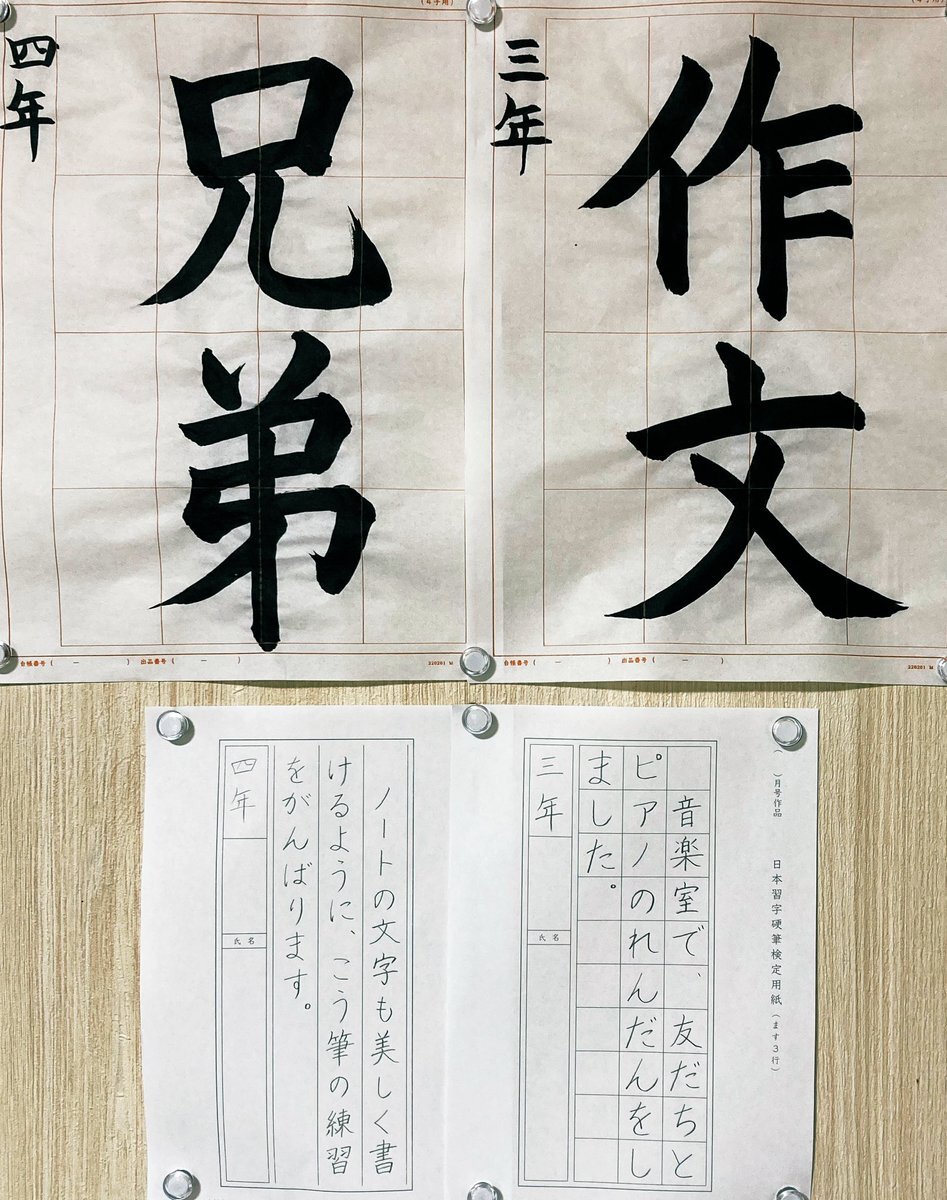 (4字用)
作文
三年
台帳番号( － ) 出品番号( － )
220201 M
(4字用)
兄弟
四年
台帳番号( － ) 出品番号( － )
220201 M
( )月号作品 日本習字硬筆検定用紙(ます3行)
音楽室で、友だちと
ピアノのれんだんをし
ました。
三年
氏名
ノートの文字も美しく書
けるように、こう筆の練習
をがんばります。
四年
氏名